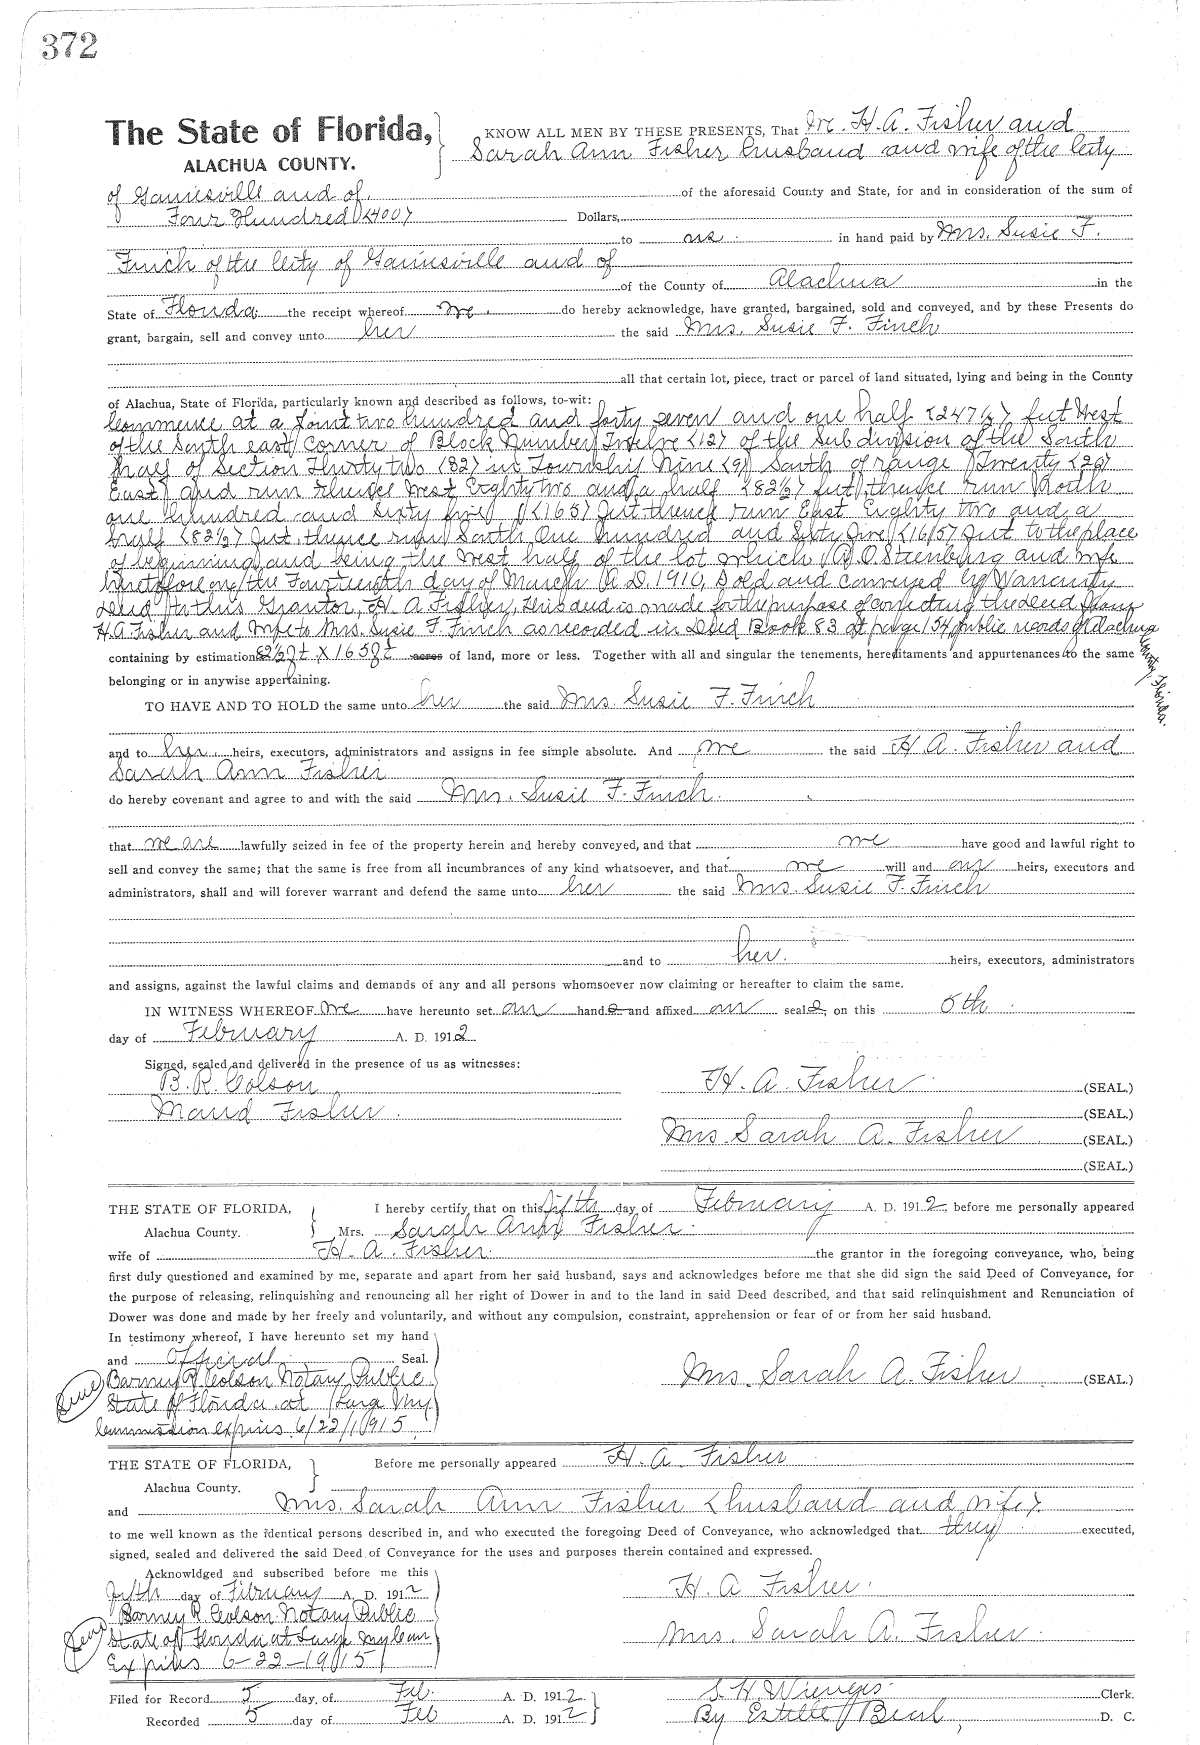 372
The State of Florida, KNOW ALL MEN BY THESE PRESENTS, That We H. A. Fisher and
ALACHUA COUNTY. Sarah Ann Fisher husband and wife of the City
of Gainesville and of of the aforesaid County and State, for and in consideration of the sum of
Four Hundred (400) Dollars,
to us in hand paid by Mrs. Susie F.
Finch of the City of Gainesville and of
of the County of Alachua in the
State of Florida the receipt whereof we do hereby acknowledge, have granted, bargained, sold and conveyed, and by these Presents do
grant, bargain, sell and convey unto her the said Mrs. Susie F. Finch
all that certain lot, piece, tract or parcel of land situated, lying and being in the County
of Alachua, State of Florida, particularly known and described as follows, to-wit:
Commence at a Point two hundred and forty seven and one half (247½) feet West
of the South east Corner of Block Number Twelve (12) of the Subdivision of the South
half of Section Thirty two (32) in Township Nine (9) South of range Twenty (20)
East and run thence West Eighty two and a half (82½) feet, thence run North
one hundred and sixty five (165) feet thence run East Eighty two and a
half (82½) feet thence run South One hundred and Sixty five (165) feet to the place
of beginning and being the West half of the lot which A. O. Steenburg and wife
heretofore on the Fourteenth day of March A. D. 1910, Sold and conveyed by Warranty
Deed to this Grantor, H. A. Fisher, this deed is made for the purpose of correcting the deed from
H. A. Fisher and wife to Mrs. Susie F. Finch as recorded in Deed Book 83 at page 154, public records of Alachua
County, Florida.
containing by estimation 82½ ft x 165 ft acres of land, more or less. Together with all and singular the tenements, hereditaments and appurtenances to the same
belonging or in anywise appertaining.
TO HAVE AND TO HOLD the same unto her the said Mrs. Susie F. Finch
and to her heirs, executors, administrators and assigns in fee simple absolute. And we the said H A. Fisher and
Sarah Ann Fisher
do hereby covenant and agree to and with the said Mrs. Susie F. Finch.
that we are lawfully seized in fee of the property herein and hereby conveyed, and that we have good and lawful right to
sell and convey the same; that the same is free from all incumbrances of any kind whatsoever, and that we will and our heirs, executors and
administrators, shall and will forever warrant and defend the same unto her the said Mrs. Susie F. Finch
and to her. heirs, executors, administrators
and assigns, against the lawful claims and demands of any and all persons whomsoever now claiming or hereafter to claim the same.
IN WITNESS WHEREOF We have hereunto set our hands and affixed our seals, on this 5th
day of February A. D. 1912
Signed, sealed and delivered in the presence of us as witnesses:
B. R. Colson H. A. Fisher (SEAL.)
Maud Fisher. (SEAL.)
Mrs Sarah A. Fisher (SEAL.)
(SEAL.)
THE STATE OF FLORIDA, I hereby certify that on this fifth day of February A. D. 1912, before me personally appeared
Alachua County. Mrs. Sarah Ann Fisher.
wife of H. A. Fisher. the grantor in the foregoing conveyance, who, being
first duly questioned and examined by me, separate and apart from her said husband, says and acknowledges before me that she did sign the said Deed of Conveyance, for
the purpose of releasing, relinquishing and renouncing all her right of Dower in and to the land in said Deed described, and that said relinquishment and Renunciation of
Dower was done and made by her freely and voluntarily, and without any compulsion, constraint, apprehension or fear of or from her said husband.
In testimony whereof, I have hereunto set my hand
and Official Seal.
Barney R Colson Notary Public Mrs. Sarah A. Fisher (SEAL.)
Seal State of Florida at Large My
Commission expires 6/22/1915
THE STATE OF FLORIDA, Before me personally appeared H. A. Fisher
Alachua County.
and Mrs. Sarah Ann Fisher (husband and wife)
to me well known as the identical persons described in, and who executed the foregoing Deed of Conveyance, who acknowledged that they executed,
signed, sealed and delivered the said Deed of Conveyance for the uses and purposes therein contained and expressed.
Acknowldged and subscribed before me this
fifth day of February A. D. 1912 H. A Fisher.
Barney R. Colson. Notary Public
Seal State of Florida at Large My Com Mrs. Sarah A. Fisher.
Expires 6-22-1915
Filed for Record 5 day, of Feb. A. D. 1912 S. H. Wienges Clerk.
Recorded 5 day of Feb A. D. 1912 By Estelle Beal, D. C.